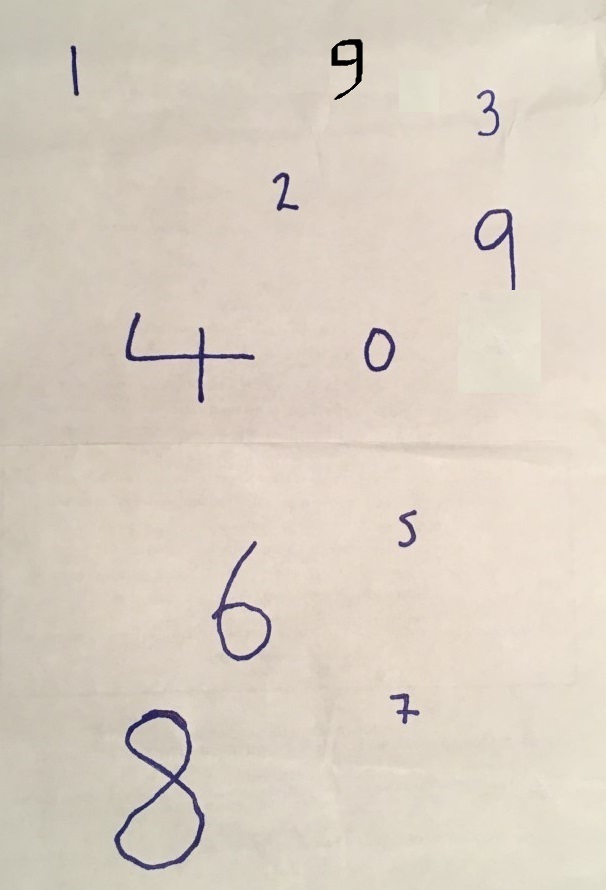 1 9
3
2
9
4 0
5
6
7
8